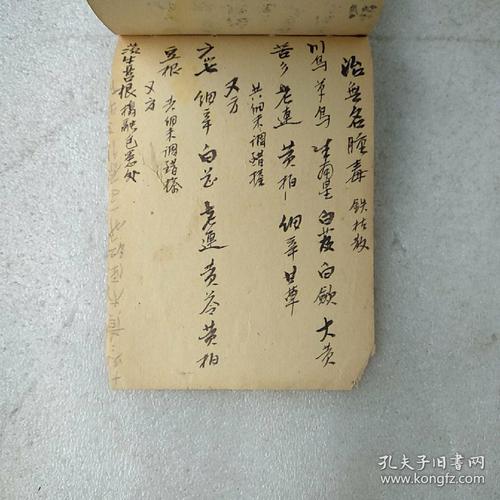 治無名腫毒 鉄桔散
川烏 草烏 生南星 白芨 白歛 大黄
苦多 老連 黄柏 細辛 甘草
共細末調醋搽
又方
六七 細辛 白芷 老連 黄芩 黄柏
豆根 共細末調醋搽
又方
落生苦根擣融包患处
孔夫子旧书网
www.kongfz.com